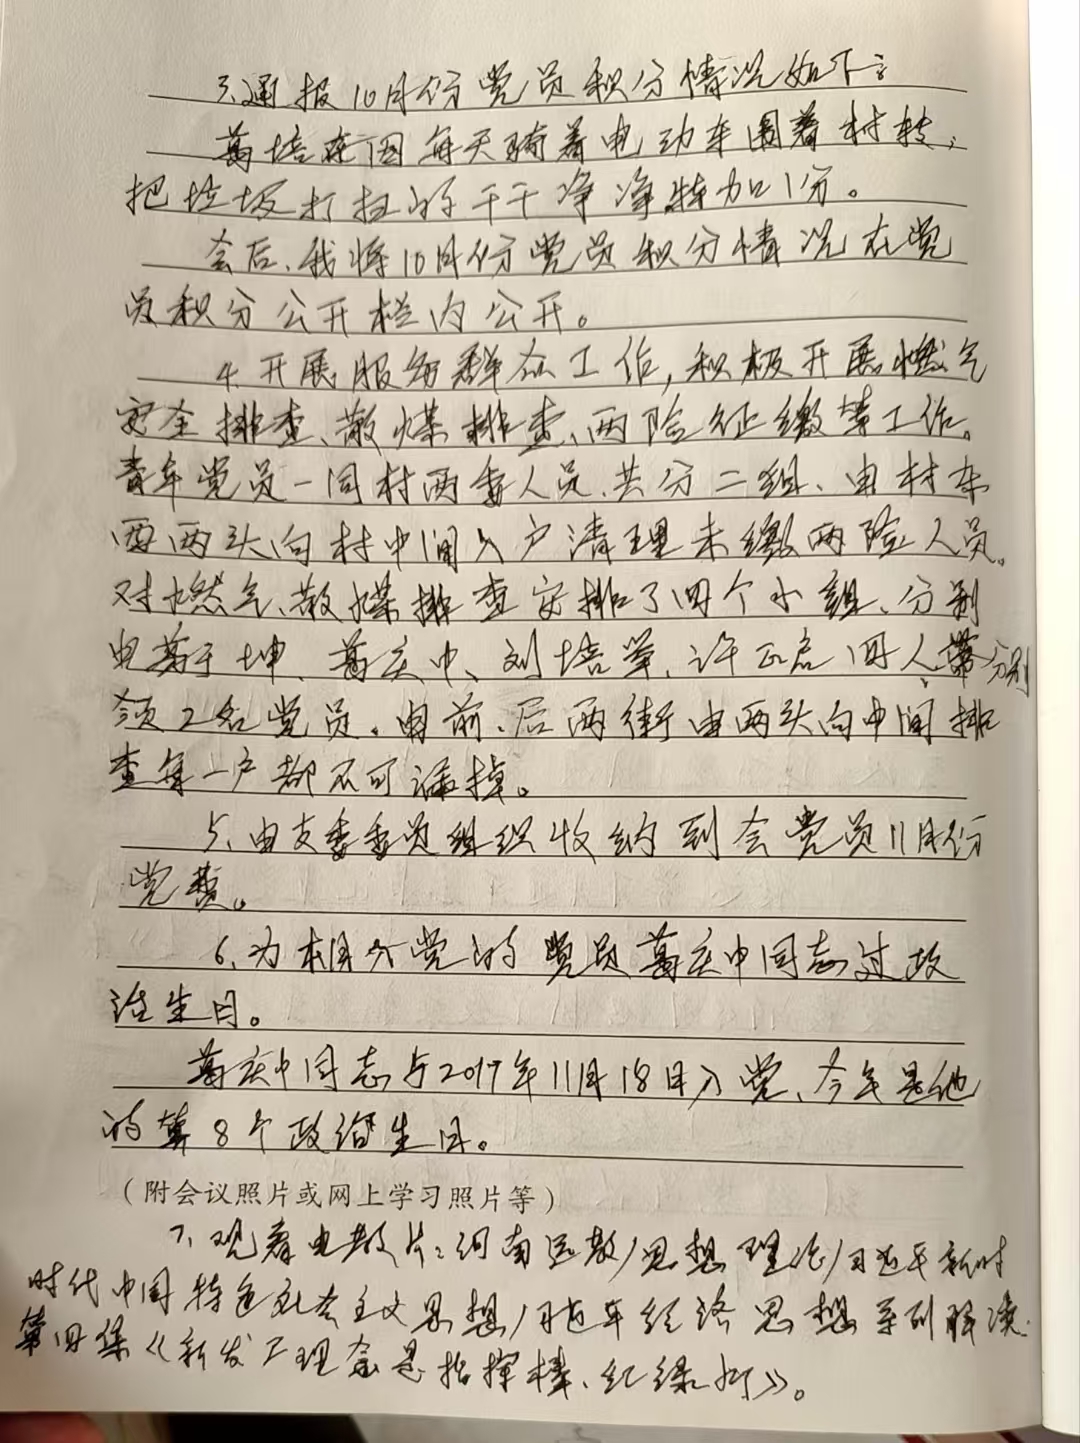 3、通报10月份党员积分情况如下:
葛培连因每天骑着电动车围着村转,
把垃圾打扫的干干净净特加1分。
会后、我将10月份党员积分情况在党
员积分公开栏内公开。
4、开展服务群众工作,积极开展燃气
安全排查、散煤排查、两险征缴等工作。
青年党员一同村两委人员、共分二组、由村东
西两头向村中间入户清理未缴两险人员。
对燃气、散煤排查安排了四个小组、分别
由葛于坤、葛庆中、刘培举、许正启四人带分别
领2名党员。由前、后两街由两头向中间排
查每一户都不可漏掉。
5、由支委委员组织收纳到会党员11月份
党费。
6、为本月入党的党员葛庆中同志过政
治生日。
葛庆中同志与2017年11月18日入党、今年是他
的第8个政治生日。
(附会议照片或网上学习照片等)
7、观看电教片:河南远教/思想理论/习近平新时
时代中国特色社会主义思想/习近平经济思想系列解读
第四集《新发展理念是指挥棒、红绿灯》。